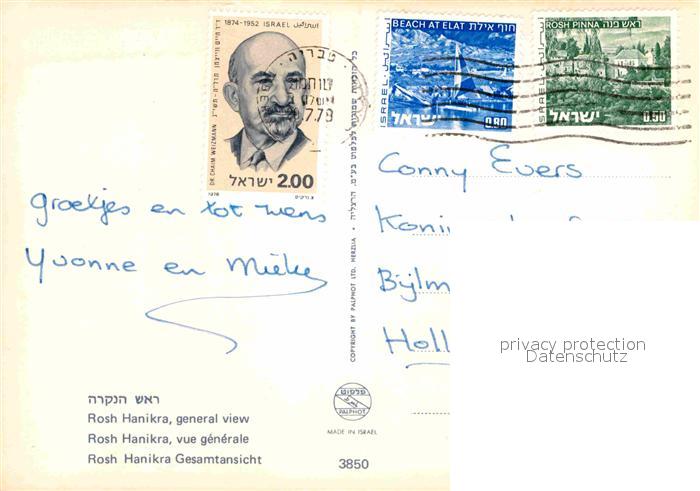 1874-1952 ISRAEL
DR. CHAIM WEIZMANN
ישראל 2.00
1978
טבריה
7.79
BEACH AT ELAT חוף אילת
ISRAEL
ישראל 0.80
ROSH PINNA ראש פנה
ISRAEL
ישראל 0.50
groetjes en tot wens
Yvonne en Mieke
Conny Evers
Koni
Bijlm
Holl
COPYRIGHT BY PALPHOT LTD. HERZLIA • כל הזכויות שמורות לפלפוט בע"מ, הרצליה
privacy protection
Datenschutz
ראש הנקרה
Rosh Hanikra, general view
Rosh Hanikra, vue générale
Rosh Hanikra Gesamtansicht
פלפוט
PALPHOT
MADE IN ISRAEL
3850